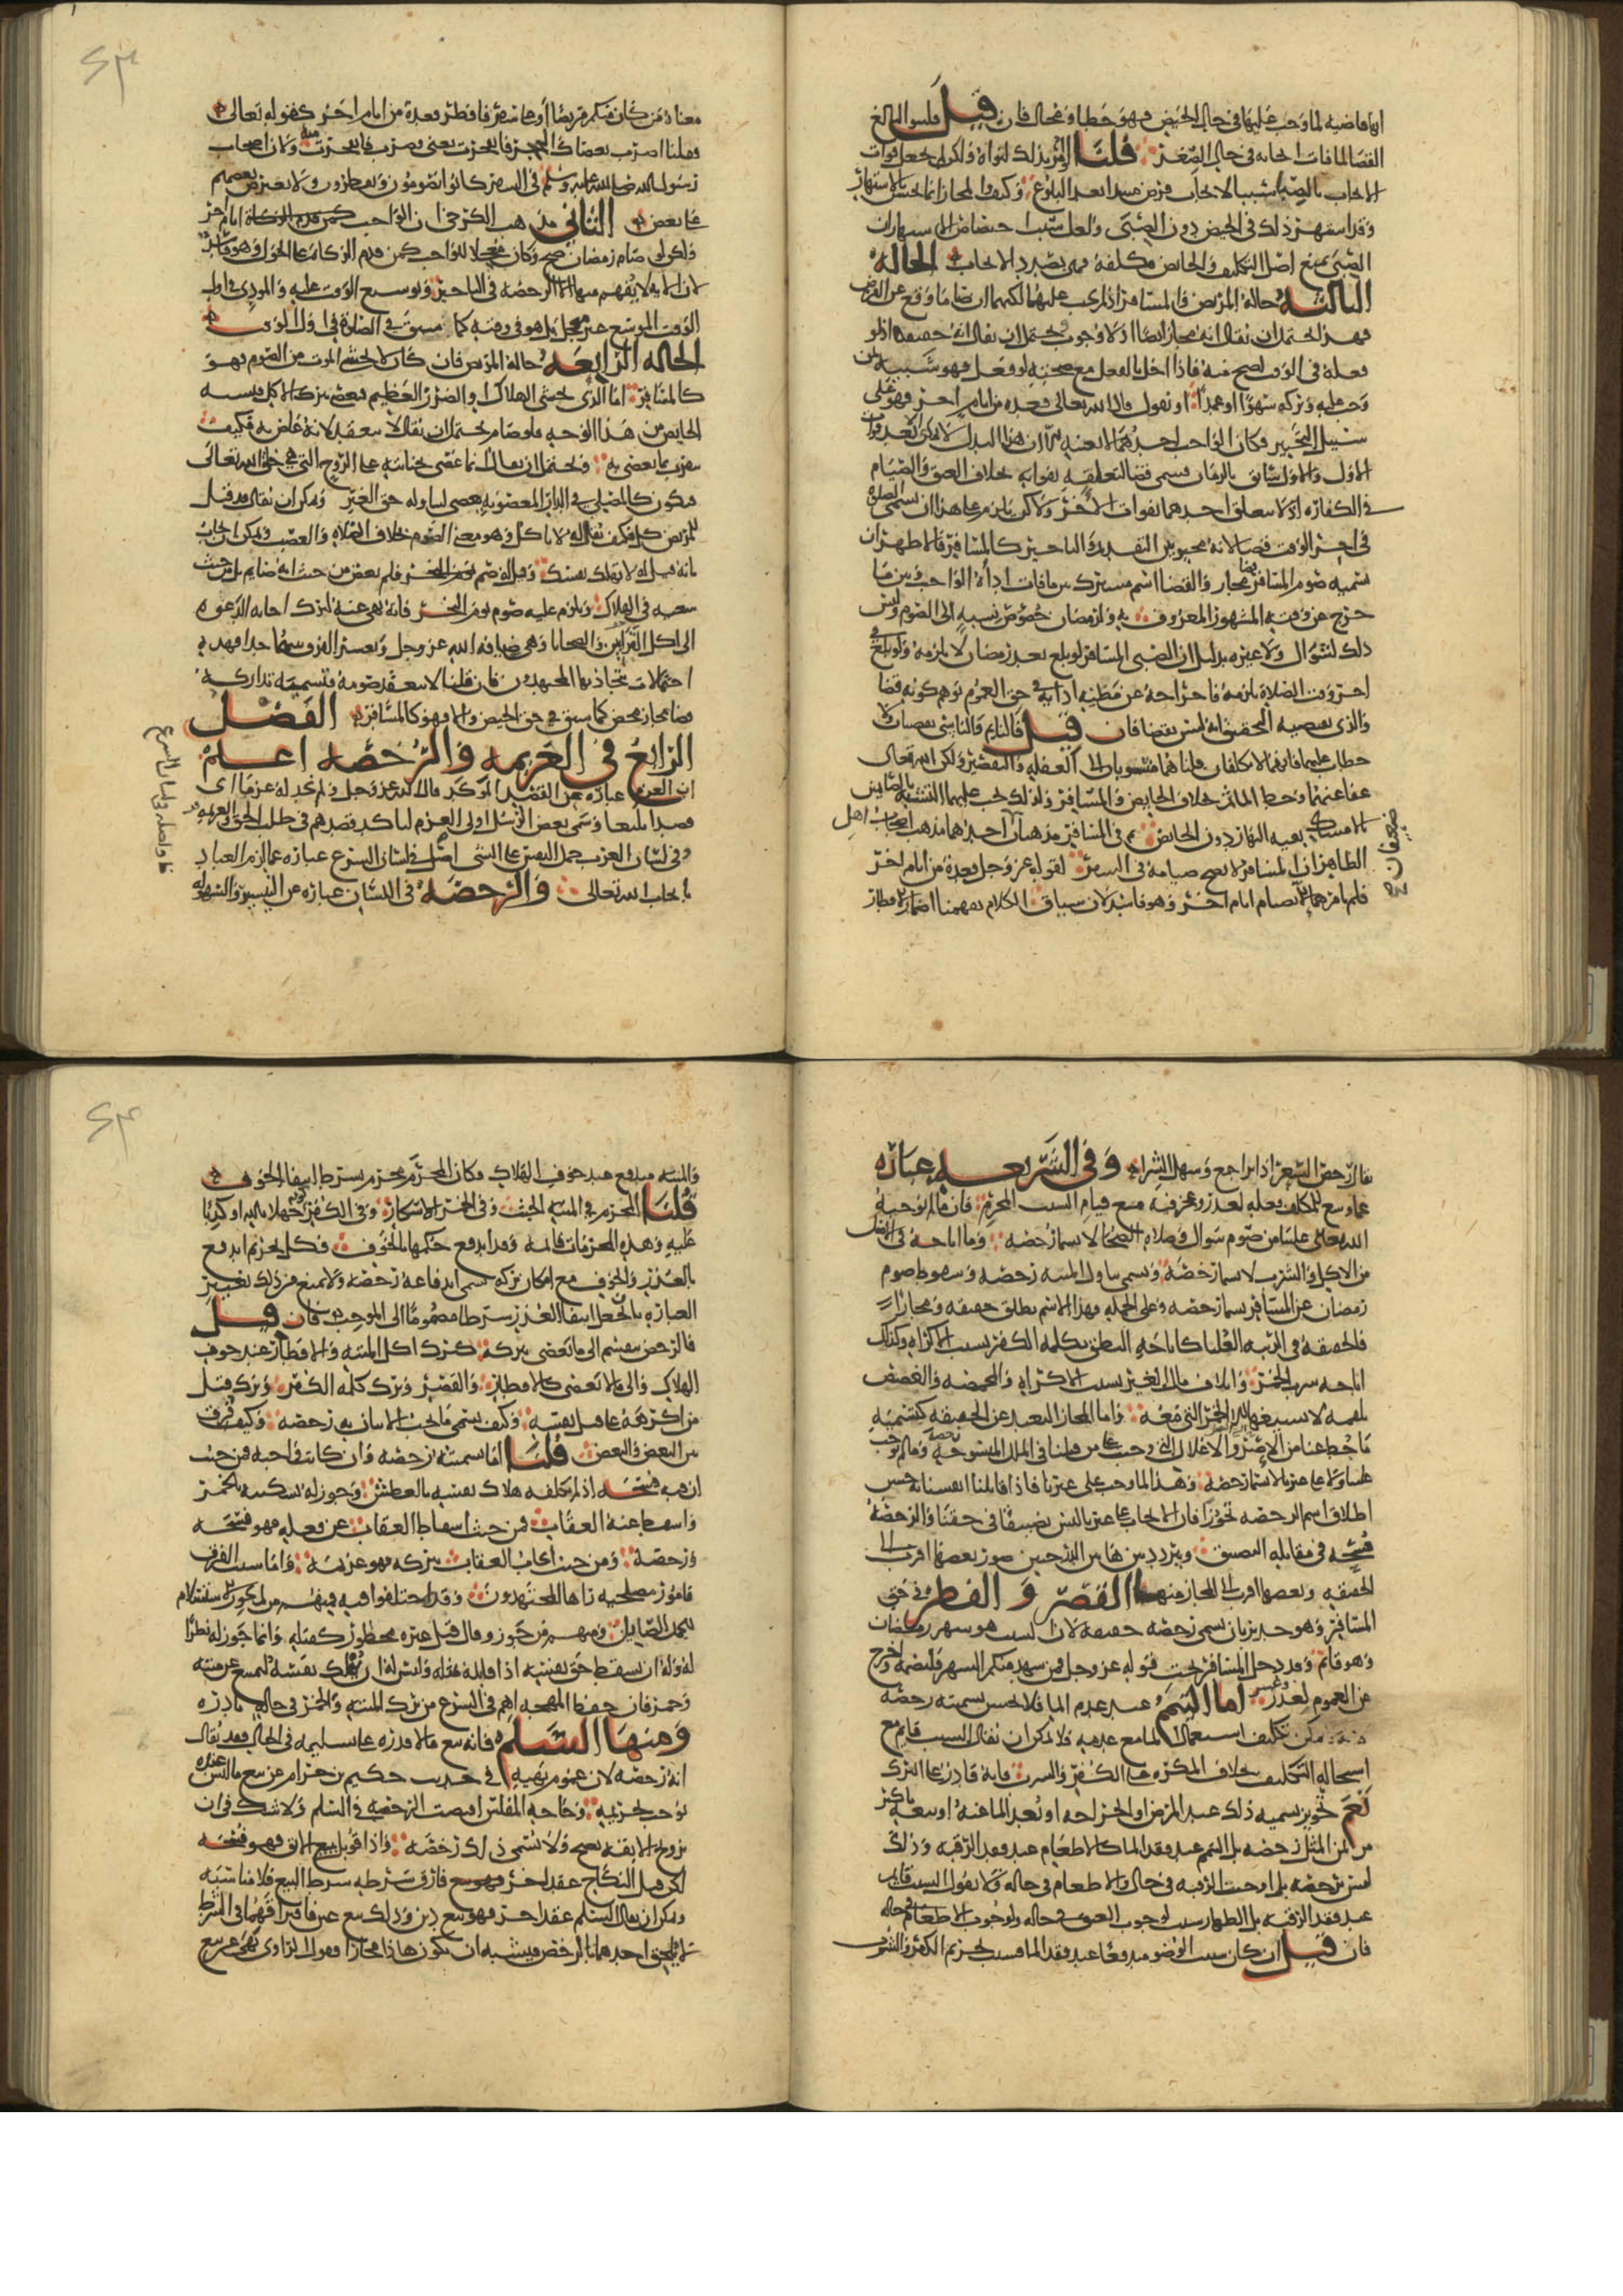 انها قاضيه لما وجب عليها في حاله الحيض فهو خطا ومحال فان قيل فلينو البالغ
القضا لما فات ايجابه في حاله الصغر قلنا لو امر بذلك لنواه ولكن لم يجعل فوات
الايجاب بالصبا سببا لايجاب فرض مبتدا بعد البلوغ وكيف والمجاز انما يحسن بالاشتهار
وقد اشتهر ذلك في الحيض دون الصبى ولعل سبب اختصاص الاشتهار ان
الصبى يمنع اصل التكليف والحائض مكلفة فهي بصدد الايجاب الحاله
الثالثه حاله المريض والمسافر اذا لم يجب عليهما لكنهما ان صاما وقع عن الفرض
فهذا يحتمل ان يقال انه مجاز ايضا اذ لا وجوب ويحتمل ان يقال انه حقيقه اذ لو
فعله في الوقت لصح منه فاذا اخل بالفعل مع صحته لو فعل فهو شبيه بمن
وجب عليه وتركه سهوا او عمدا او نقول قال الله تعالى فعده من ايام اخر فهو على
سبيل التخيير فكان الواجب احدهما لا بعينه الا ان هذا البدل لا يمكن الا بعد فوات
الاول والاول سابق بالزمان فسمى قضا لتعلقه بفواته بخلاف العتق والصيام
في الكفاره اذ لا يتعلق احدهما بفوات الاخر ولكن يلزم على هذا ان تسمى الصلوه
في اخر الوقت قضا لانه مخير بين التقديم والتاخير كالمسافر فالاظهر ان
تسميه صوم المسافر قضا مجاز والقضا اسم مشترك بين ما فات اداوه الواجب وبين ما
خرج عن وقته المشهور المعروف به ولرمضان خصوص نسبه الى الصوم وليس
ذلك لشوال ولا غيره بدليل ان الصبى المسافر لو بلغ بعد رمضان لا يلزمه ولو بلغ في
اخر وقت الصلاة يلزمه فاخراجه عن مظنه ادايه في حق العموم يوهم كونه قضا
والذي يقتضيه التحقيق انه ليس بقضا فان قيل فالنايم والناسي يقضيان ولا
خطاب عليهما فانهما لا يكلفان قلنا هما منسوبان الى الغفله والتقصير ولكن الله تعالى
عفا عنهما وحط الماثم بخلاف الحايض والمسافر ولذلك يجب عليهما التشبه بالصايمين
بالامساك بقيه النهار دون الحائض ثم في المسافر مذهبان احدهما مذهب اصحاب اهل
الظاهر ان المسافر لا يصح صيامه في السفر لقوله عز وجل فعدة من ايام اخر
فلم يامرهما الا بصيام ايام اخر وهو فاسد لان سياق الكلام يفهمنا اضمار الافطار
ضعيفان صح
معناه من كان منكم مريضا او على سفر فافطر فعدة من ايام اخر كقوله تعالى
فقلنا اضرب بعصاك الحجر فانفجرت يعني فضرب فانفجرت منه ولان اصحاب
رسول الله صلى الله عليه وسلم في السفر كانوا يصومون ويفطرون ولا يعترض بعضهم
على بعض الثانى مذهب الكرخي ان الواجب ايام اخر
ولكن لو صام رمضان صح وكان معجلا للواجب كمن قدم الزكاه على الحول وهو فاسد
لان الايه لا يفهم منها الا الرخصه في التاخير وتوسيع الوقت عليه والمودى في اول
الوقت الموسع غير معجل بل هو في وقته كما سبق في الصلوة في اول الوقت
الحاله الرابعه حالة المريض فان كان لا يخشى الموت من الصوم فهو
كالمسافر اما الذي يخشى الهلاك او الضرر العظيم فيعصى بترك الاكل فيشبه
الحايض من هذا الوجه فلو صام يحتمل ان يقال لا ينعقد لانه عاص به فكيف
يتقرب بما يعصى به ويحتمل ان يقال انما عصى بجنايته على الروح التي هي حق الله تعالى
فيكون كالمصلي في الدار المغصوبه يعصي لتناوله حق الغير ويمكن ان يقال قد قيل
للمريض كل فكيف يقال له لا تاكل وهو معنى الصوم بخلاف الصلاه والغصب ويمكن ان يجاب
بانه قيل له لا تهلك نفسك وقيل له صم فلم يعص من حيث انه صايم بل من حيث
سعيه في الهلاك ويلزم عليه صوم يوم النحر فانه نهي عنه لترك اجابه الدعوه
الى اكل القرابين والضحايا وهي ضيافه الله عز وجل ويعسر الفرق بينهما جدا فهذه
احتمالات يتجاذبها المجتهدون فان قلنا لا ينعقد صومه فتسميه تداركه
قضا مجاز محض كما سبق في حق الحيض والا فهو كالمسافر الفصل
الرابع في العزيمه والرخصه اعلم
ان العزم عباره عن القصد الموكد قال الله عز وجل ولم نجد له عزما اي
قصدا بليغا وسمى بعض الرسل اولى العزم لتاكد قصدهم في طلب الحق والعزيمه
وفي لسان حمله الشرع عباره عما لزم العباد
بايجاب الله تعالى والرخصه في اللسان عباره عن التيسير والسهوله
يقال رخص السعر اذا تراجع وسهل الشراء وفي الشريعه عباره
عما وسع للمكلف فعله لعذر وعجز عنه مع قيام السبب المحرم فان ما لم يوجبه
الله تعالى علينا من صوم شوال وصلاه الضحى لا يسما رخصه وما اباحه في الاصل
من الاكل والشرب لا يسما رخصه ويسمى تناول الميته رخصه وسقوط صوم
رمضان عن المسافر يسما رخصه وعلى الجمله فهذا الاسم يطلق حقيقه ومجازا
فالحقيقة في الرتبه العليا كاباحه النطق بكلمه الكفر بسبب الاكراه وكذلك
اباحه شرب الخمر واتلاف مال الغير بسبب الاكراه والمخمصه والغصص
بلقمه لا يسيغها الا الخمر التي معه واما المجاز البعيد عن الحقيقه كتسميه
ما حط عنا من الاصر والاغلال التي وجبت على من قبلنا في الملل المنسوخه رخصه وما لم يجب
علينا ولا على غيرنا لا يسما رخصه وهذا لما وجب على غيرنا فاذا قابلنا انفسنا به حسن
اطلاق اسم الرخصه تجوزا فان الايجاب على غيرنا ليس تضييقا في حقنا والرخصه
فسحه في مقابله التضييق ويتردد بين هاتين الدرجتين صور بعضها اقرب الى
الحقيقه وبعضها اقرب الى المجاز منها القصر والفطر في حق
المسافر وهو جدير بان يسمى رخصه حقيقه لان السبب هو شهر رمضان
وهو قائم وقد دخل المسافر تحت قوله عز وجل فمن شهد منكم الشهر فليصمه واخرج
عن العموم لعذر وعسر اما التيمم عند عدم الما فلا يحسن تسميته رخصه
يمكن تكليف استعمال الما مع عدمه فلا يمكن ان يقال السبب قايم مع
استحاله التكليف بخلاف المكره على الكفر والشرب فانه قادر على الترك
نعم تجويز تسميه ذلك عند المرض او الجراحه او بعد الما عنه او بيعه باكثر
من ثمن المثل رخصه بل التيمم عند فقد الما كالاطعام عند فقد الرقبه وذلك
ليس برخصه بل اوجبت الرقبه في حاله والاطعام في حاله ولا نقول السبب قايم
عند فقد الرقبه بل الظهار سبب لوجوب العتق في حاله ولوجوب الاطعام في حاله
فان قيل ان كان سبب الوضو مدفوعا عند فقد الما فسبب تحريم الكفر والشرب
والميته مدفوع عند خوف الهلاك فكان المحرم محرم بشرط انتفا الخوف
قلنا المحرم في الميته الخبث وفي الخمر الاسكار وفي الكفر كونه جهلا بالله او كذبا
عليه وهذه المحرمات قائمه وقد اندفع حكمها بالخوف فكل تحريم اندفع
بالعذر والخوف مع امكان تركه يسمى اندفاعه رخصه ولا يمنع من ذلك تغيير
العباره بان يجعل انتفا العذر شرطا مضموما الى الموجب فان قيل
فالرخص تنقسم الى ما يعصى بتركه كترك اكل الميته والافطار عند خوف
الهلاك والى ما لا يعصى كالافطار والقصر وترك كلمه الكفر وترك قتل
من اكره على قتل نفسه وكيف يسمى ما يجب الاتيان به رخصه وكيف فرق
بين البعض والبعض قلنا اما تسميته رخصه وان كانت واجبه فمن حيث
ان فيه فسحه اذ لم يكلف هلاك نفسه بالعطش وجوز له تسكينه بالخمر
واسقط عنه العقاب فمن حيث اسقاط العقاب عن فعله فهو فسحه
ورخصه ومن حيث ايجاب العقاب بتركه فهو عزيمه واما سبب الفرق
فامور مصلحيه راها المجتهدون وقد اختلفوا فيه فمنهم من لم يجوز الاستسلام
للصايل ومنهم من جوز وقال قتل غيره محظور كقتله وانما جوز له نظرا
له وله ان يسقط حق نفسه اذا قابله مثله وليس له ان يهلك نفسه ليمتنع عن ميته
وخمر فان حفظ المهجه اهم في الشرع من ترك الميته والخمر في حاله نادره
ومنها السلم فانه بيع ما لا يقدر على تسليمه في الحال فقد يقال
انه رخصه لان عموم نهيه في حديث حكيم بن حزام عن بيع ما ليس عنده
يوجب تحريمه وحاجه المفلس اقتضت الرخصه في السلم ولا شك في ان
تزويج الابقه يصح ولا يسمى ذلك رخصه واذا قوبل ببيع الابق فهو فسحه
لكن قيل النكاح عقد اخر فارق شرطه شرط البيع فلا مناسبه
ويمكن ان يقال السلم عقد اخر فهو بيع دين وذلك بيع عين فافترقا وافتراقهما في الشرط
لا يلحق احدهما بالرخص ويشبه ان يكون هذا مجازا وقول الراوي نهى عن بيع